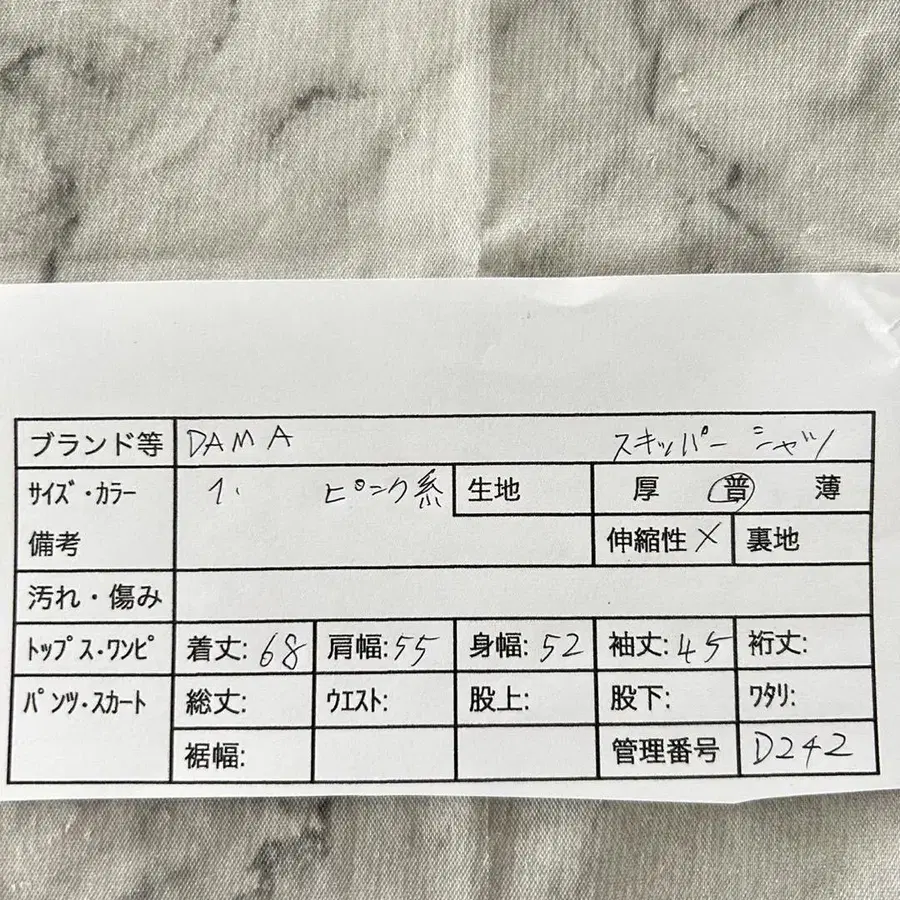 ブランド等 DAMA スキッパーシャツ
サイズ・カラー 1. ピンク系 生地 厚 普 薄
備考 伸縮性 × 裏地
汚れ・傷み
トップス・ワンピ 着丈: 68 肩幅: 55 身幅: 52 袖丈: 45 裄丈:
パンツ・スカート 総丈: ウエスト: 股上: 股下: ワタリ:
裾幅: 管理番号 D242